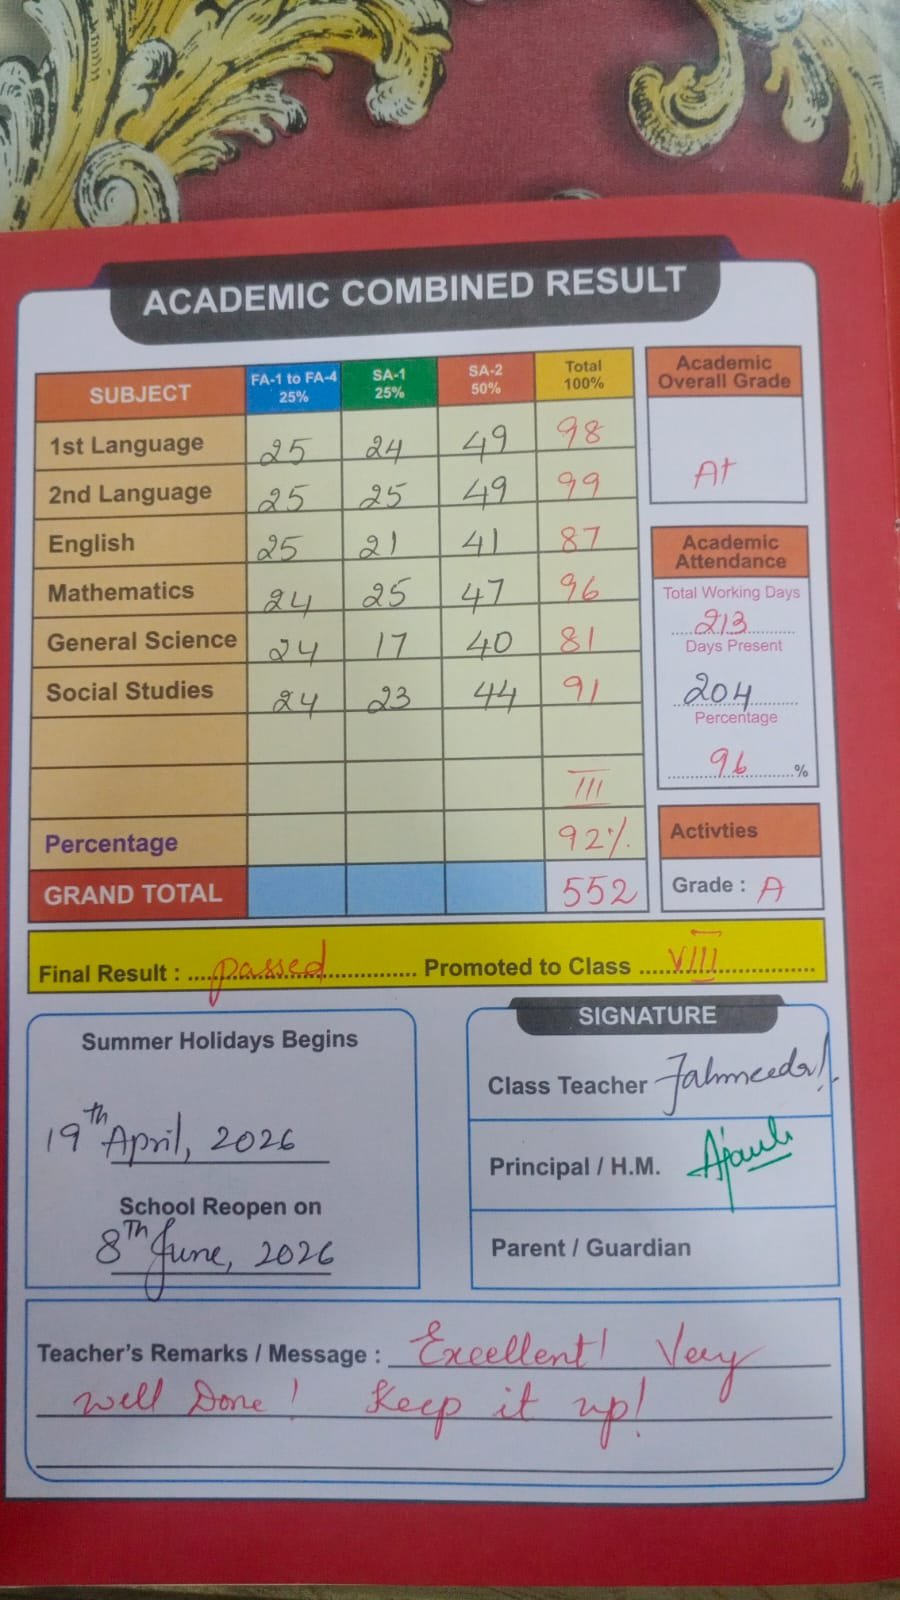 ACADEMIC COMBINED RESULT
SUBJECT FA-1 to FA-4 25% SA-1 25% SA-2 50% Total 100%
1st Language 25 24 49 98
2nd Language 25 25 49 99
English 25 21 41 87
Mathematics 24 25 47 96
General Science 24 17 40 81
Social Studies 24 23 44 91
III
Percentage 92%
GRAND TOTAL 552
Academic
Overall Grade
A+
Academic
Attendance
Total Working Days
213
Days Present
204
Percentage
96 %
Activties
Grade : A
Final Result : passed Promoted to Class VIII
Summer Holidays Begins
19th April, 2026
School Reopen on
8Th June, 2026
SIGNATURE
Class Teacher
Principal / H.M.
Parent / Guardian
Teacher's Remarks / Message : Excellent! Very
well Done! Keep it up!